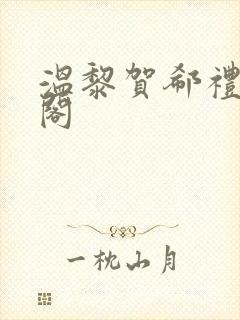 溫黎賀郗禮
閣
一枕山月